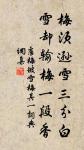 梅須遜雪三分白
雪却輸梅一段香
盧梅坡雪梅其一詞典